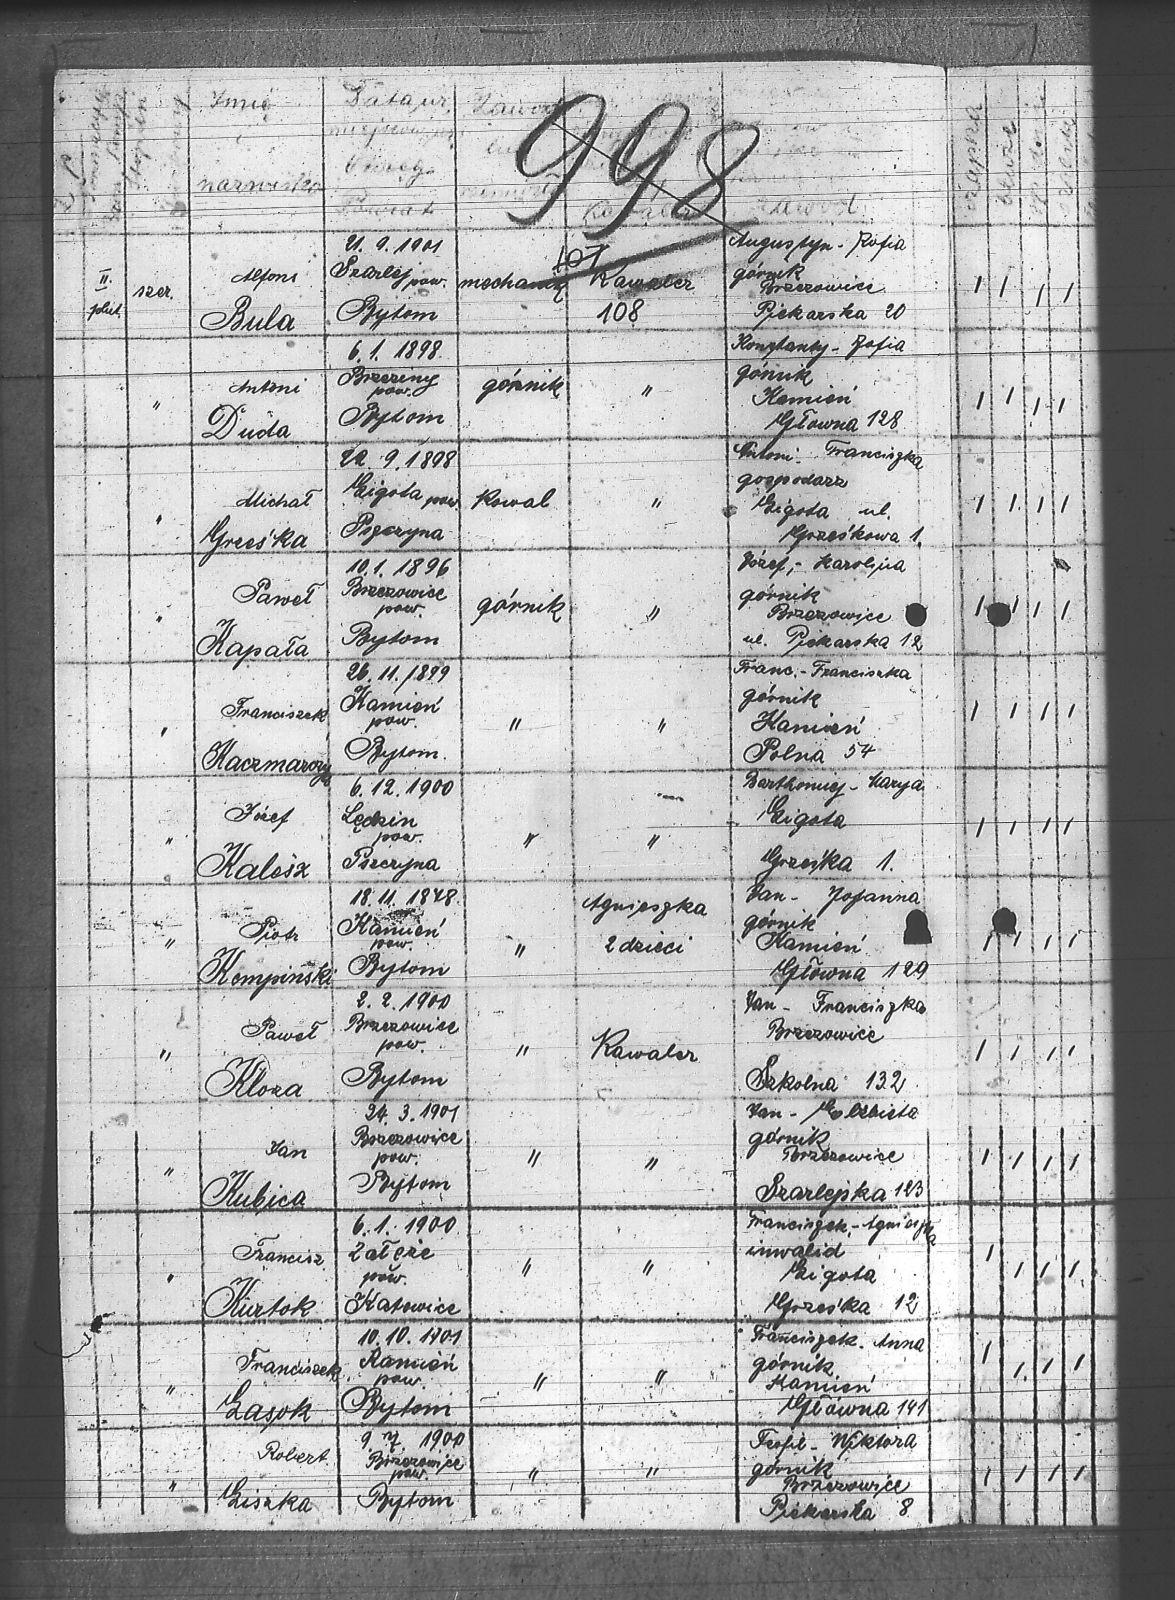 Imię
i
nazwisko
Data ur.
Powiat
998
107
czapka
II.
plut.
szer.
Alfons
Bula
21. 9. 1901
Szarlej pow.
Bytom
mechanik
Kawaler
108
Augustyn - Zofia
górnik
Brzezowice
Piekarska 20
"
Antoni
Duda
6. 1. 1898
Brzeziny
pow.
Bytom
górnik
"
Konstanty - Zofia
górnik
Kamień
Główna 128
"
Michał
Grześka
22. 9. 1898
Gigota pow.
Pszczyna
Kowal
"
Antoni - Franciszka
gospodarz
Gigota ul.
Grześkowa 1.
"
Paweł
Kapała
10. 1. 1896
Brzezowice
pow.
Bytom
górnik
"
Józef - Karolina
górnik
Brzezowice
ul. Piekarska 12
"
Franciszek
Kaczmarczyk
26. 11. 1899
Kamień
pow.
Bytom.
"
"
Franc. - Franciszka
górnik
Kamień
Polna 54
"
Józef
Kalesz
6. 12. 1900
Lędzin
pow.
Pszczyna
"
"
Bartłomiej - Marya
Gigota
Grześka 1.
"
Piotr
Kempiński
18. 11. 1878
Kamień
pow.
Bytom
"
Agnieszka
2 dzieci
Jan - Johanna
górnik
Kamień
Główna 129
"
Paweł
Kloza
2. 2. 1900
Brzezowice
pow.
Bytom
"
Kawaler
Jan - Franciszka
Brzezowice
Szkolna 132
"
Jan
Kubica
24. 3. 1901
Brzezowice
pow.
Bytom
"
"
Jan - Elżbieta
górnik
Brzezowice
Szarlejska 123
"
Francisz
Kurtok
6. 1. 1900
Załęże
pow.
Katowice
"
"
Franciszek - Agnieszka
inwalid
Gigota
Grześka 12
"
Franciszek
Lasok
10. 10. 1901
Kamień
pow.
Bytom
"
"
Franciszek - Anna
górnik
Kamień
Główna 141
"
Robert
Liszka
9. 7. 1900
Brzezowice
pow.
Bytom
"
"
Teofil - Wiktora
górnik
Brzezowice
Piekarska 8